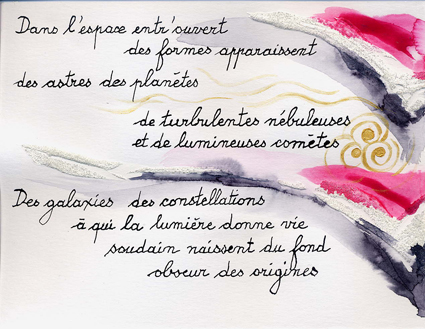 Dans l'espace entr'ouvert
des formes apparaissent
des astres des planètes
de turbulentes nébuleuses
et de lumineuses comètes
Des galaxies des constellations
à qui la lumière donne vie
soudain naissent du fond
obscur des origines